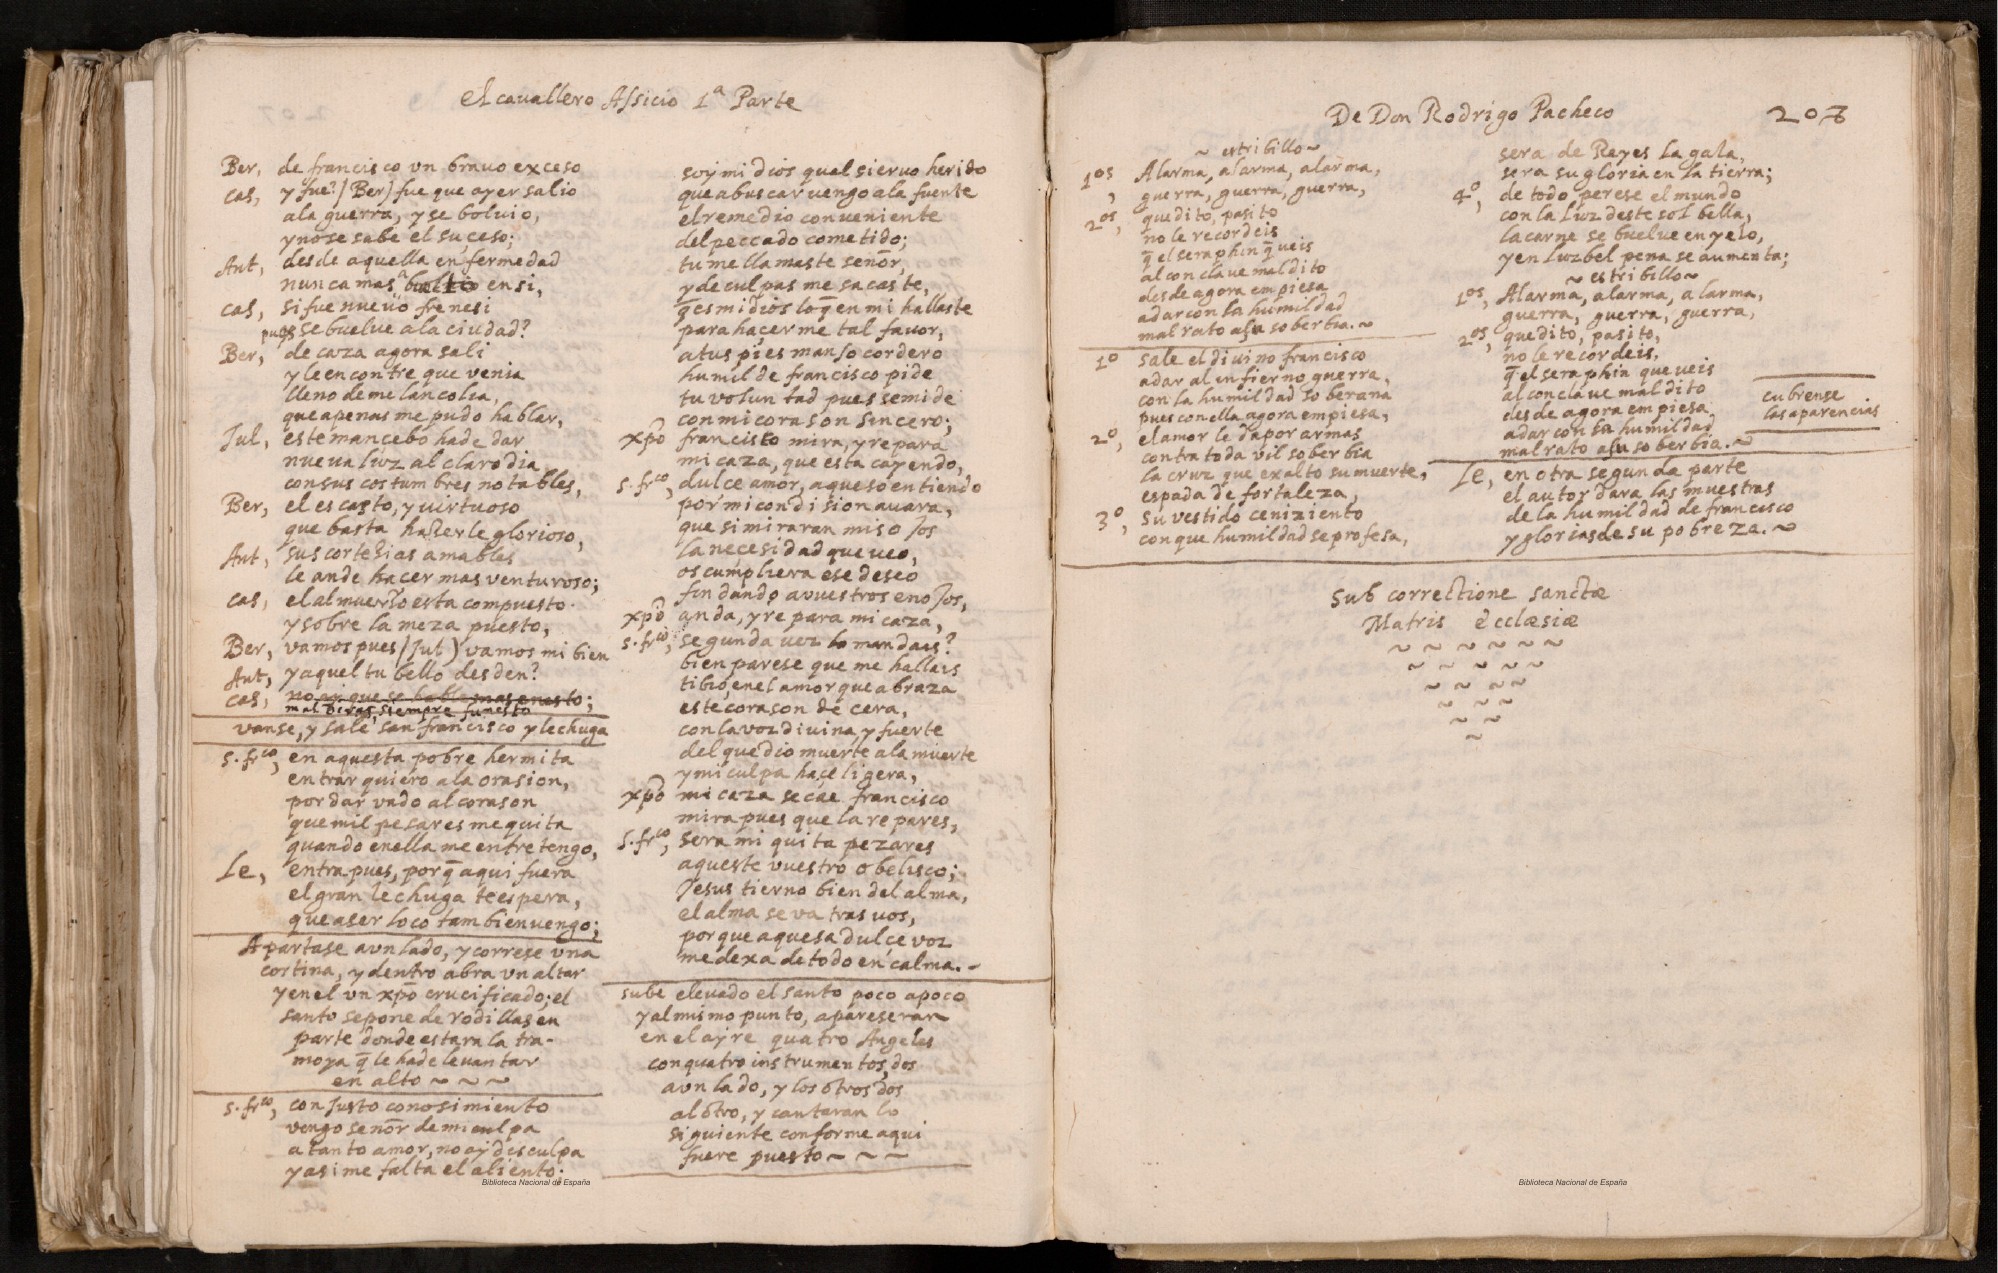 El cavallero Assicio 1ª Parte
Ber, de francisco vn bravo exceso
cas, y fue? / Ber) fue que ayer salio
ala guerra, y se boluio,
y no se sabe el suceso;
Ant, desde aquella enfermedad
nunca mas en si,
cas, si fue nueuo frenesi
pues se buelue a la ciudad?
Ber, de caza agora sali
y le encontre que venia
lleno de melancolia,
que apenas me pudo hablar,
Jul, este mancebo hade dar
nueva luz al claro dia
con sus costumbres notables,
Ber, el es casto, y virtuoso
que basta haserle glorioso,
Ant, sus cortesias amables
le ande hacer mas venturoso;
cas, el almuerso esta compuesto
y sobre la meza puesto,
Ber, vamos pues / Jul) vamos mi bien
Ant, y aquel tu bello desden?
cas, no ai que se hable mas en esto;
siempre funesto
vanse, y sale san francisco y lechuga
s. frco, en aquesta pobre hermita
entrar quiero ala orasion,
por dar vado al corason
que mil pesares me quita
quando en ella me entretengo,
Le, entra pues, porq̄ aqui fuera
el gran lechuga te espera,
que a ser loco tambien vengo;
Apartase a vn lado, y correse vna
cortina, y dentro abra vn altar
y en el vn xp̄o crucificado; el
santo se pone de rodillas en
parte donde estara la tra-
moya q̄ le hade levantar
en alto ~ ~ ~
s. frco, con justo conosimiento
vengo señor de mi culpa
a tanto amor, no ay disculpa
y asi me falta el aliento;
soy mi dios qual sieruo herido
que a buscar vengo a la fuente
el remedio conveniente
del peccado cometido;
tu me llamaste señor,
y de culpas me sacaste,
q̄ es mi dios lo q̄ en mi hallaste
para hacerme tal favor,
a tus pies manso cordero
humilde francisco pide
tu voluntad pues se mide
con mi corason sincero;
xp̄o francisco mira, y repara
mi caza, que esta cayendo,
s. frco, dulce amor, aqueso entiendo
por mi condision auara,
que si miraran mis ojos
la necesidad que veo,
os cumpliera ese deseo
fin dando a vuestros enojos,
xp̄o anda, y repara mi caza,
s. frco, segunda vez lo mandais?
bien parese que me hallais
tibio en el amor que abraza
este corason de cera,
con la voz diuina y fuerte
del que dio muerte a la muerte
y mi culpa hace ligera,
xp̄o mi caza se cae francisco
mira pues que la repares,
s. frco, sera mi quita pezares
aqueste vuestro obelisco;
Jesus tierno bien del alma,
el alma se va tras uos,
porque aquesa dulçe voz
me dexa de todo en calma. ~
sube elevado el santo poco apoco
y al mismo punto, apareseran
en el ayre quatro Angeles
con quatro instrumentos, dos
a vn lado, y los otros dos
al otro, y cantaran lo
siguiente conforme aqui
fuere puesto ~ ~ ~
Biblioteca Nacional de España
De Don Rodrigo Pacheco 207
~ estribillo ~
1os, Alarma, alarma, alarma,
guerra, guerra, guerra,
2os, quedito, pasito
no le recordeis
q̄ el seraphin q̄ veis
al conclave maldito
desde agora empiesa
a dar con la humildad
mal rato a su soberbia. ~
1o sale el diuino francisco
a dar al infierno guerra,
con la humildad soberana
pues con ella agora empiesa,
2o, el amor le da por armas
contra toda vil soberbia
la cruz que exalto su muerte,
espada de fortaleza,
3o, su vestido ceniziento
con que humildad se profesa,
sera de Reyes la gala,
sera su gloria en la tierra;
4o, de todo perese el mundo
con la luz deste sol bella,
la carne se buelue en yelo,
y en luzbel pena se aumenta;
~ estribillo ~
1os, Alarma, alarma, alarma,
guerra, guerra, guerra,
2os, quedito, pasito,
no le recordeis,
q̄ el seraphin que veis
al conclave maldito
desde agora empiesa
a dar con su humildad
mal rato a su soberbia. ~
cubrense
las aparencias
Le, en otra segunda parte
el autor dara las muestras
de la humildad de francisco
y glorias de su pobreza. ~
Sub correctione sanctæ
Matris Ecclæsiæ
Biblioteca Nacional de España